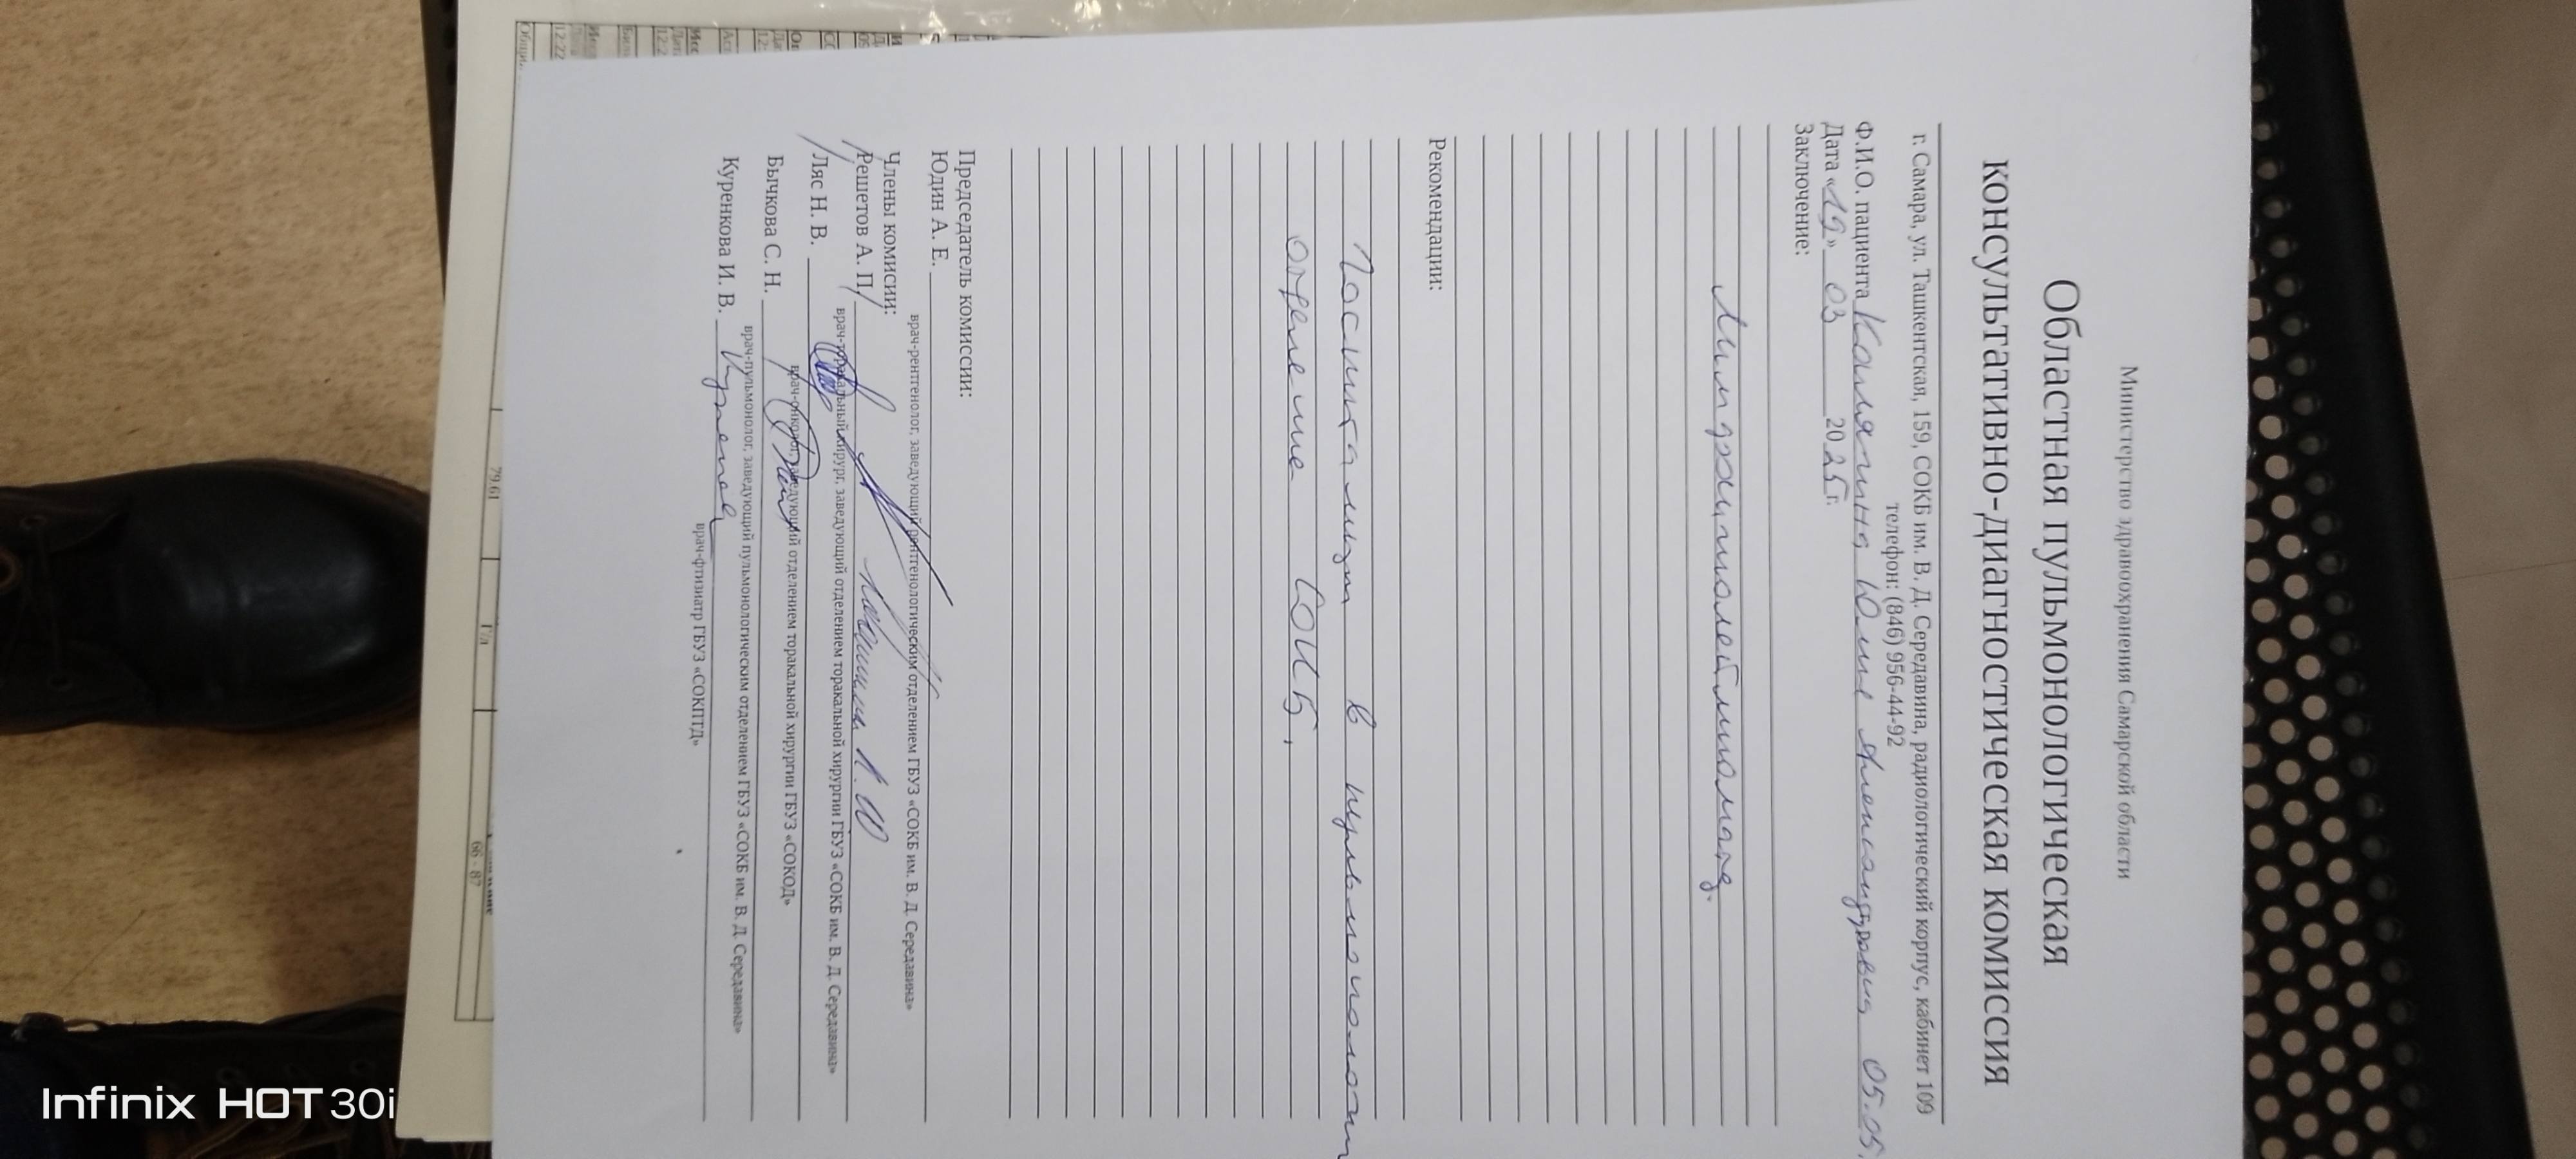 Министерство здравоохранения Самарской области
Областная пульмонологическая
консультативно-диагностическая комиссия
г. Самара, ул. Ташкентская, 159, СОКБ им. В. Д. Середавина, радиологический корпус, кабинет 109
телефон: (846) 956-44-92
Ф.И.О. пациента Калягина Юлия Александровна 05.05.
Дата «19» 03 2025 г.
Заключение:
Лимфангиолейомиоматоз.
Рекомендации:
Госпитализация в пульмонолог
отделение СОКБ,
Председатель комиссии:
Юдин А. Е.
врач-рентгенолог, заведующий рентгенологическим отделением ГБУЗ «СОКБ им. В. Д. Середавина»
Члены комисии:
Решетов А. П.
врач-торакальный хирург, заведующий отделением торакальной хирургии ГБУЗ «СОКБ им. В. Д. Середавина»
Ляс Н. В.
врач-онколог, заведующий отделением торакальной хирургии ГБУЗ «СОКОД»
Бычкова С. Н.
врач-пульмонолог, заведующий пульмонологическим отделением ГБУЗ «СОКБ им. В. Д. Середавина»
Куренкова И. В.
врач-фтизиатр ГБУЗ «СОКПТД»
79.61
Г/л
66 - 87
12:22
Infinix HOT 30i